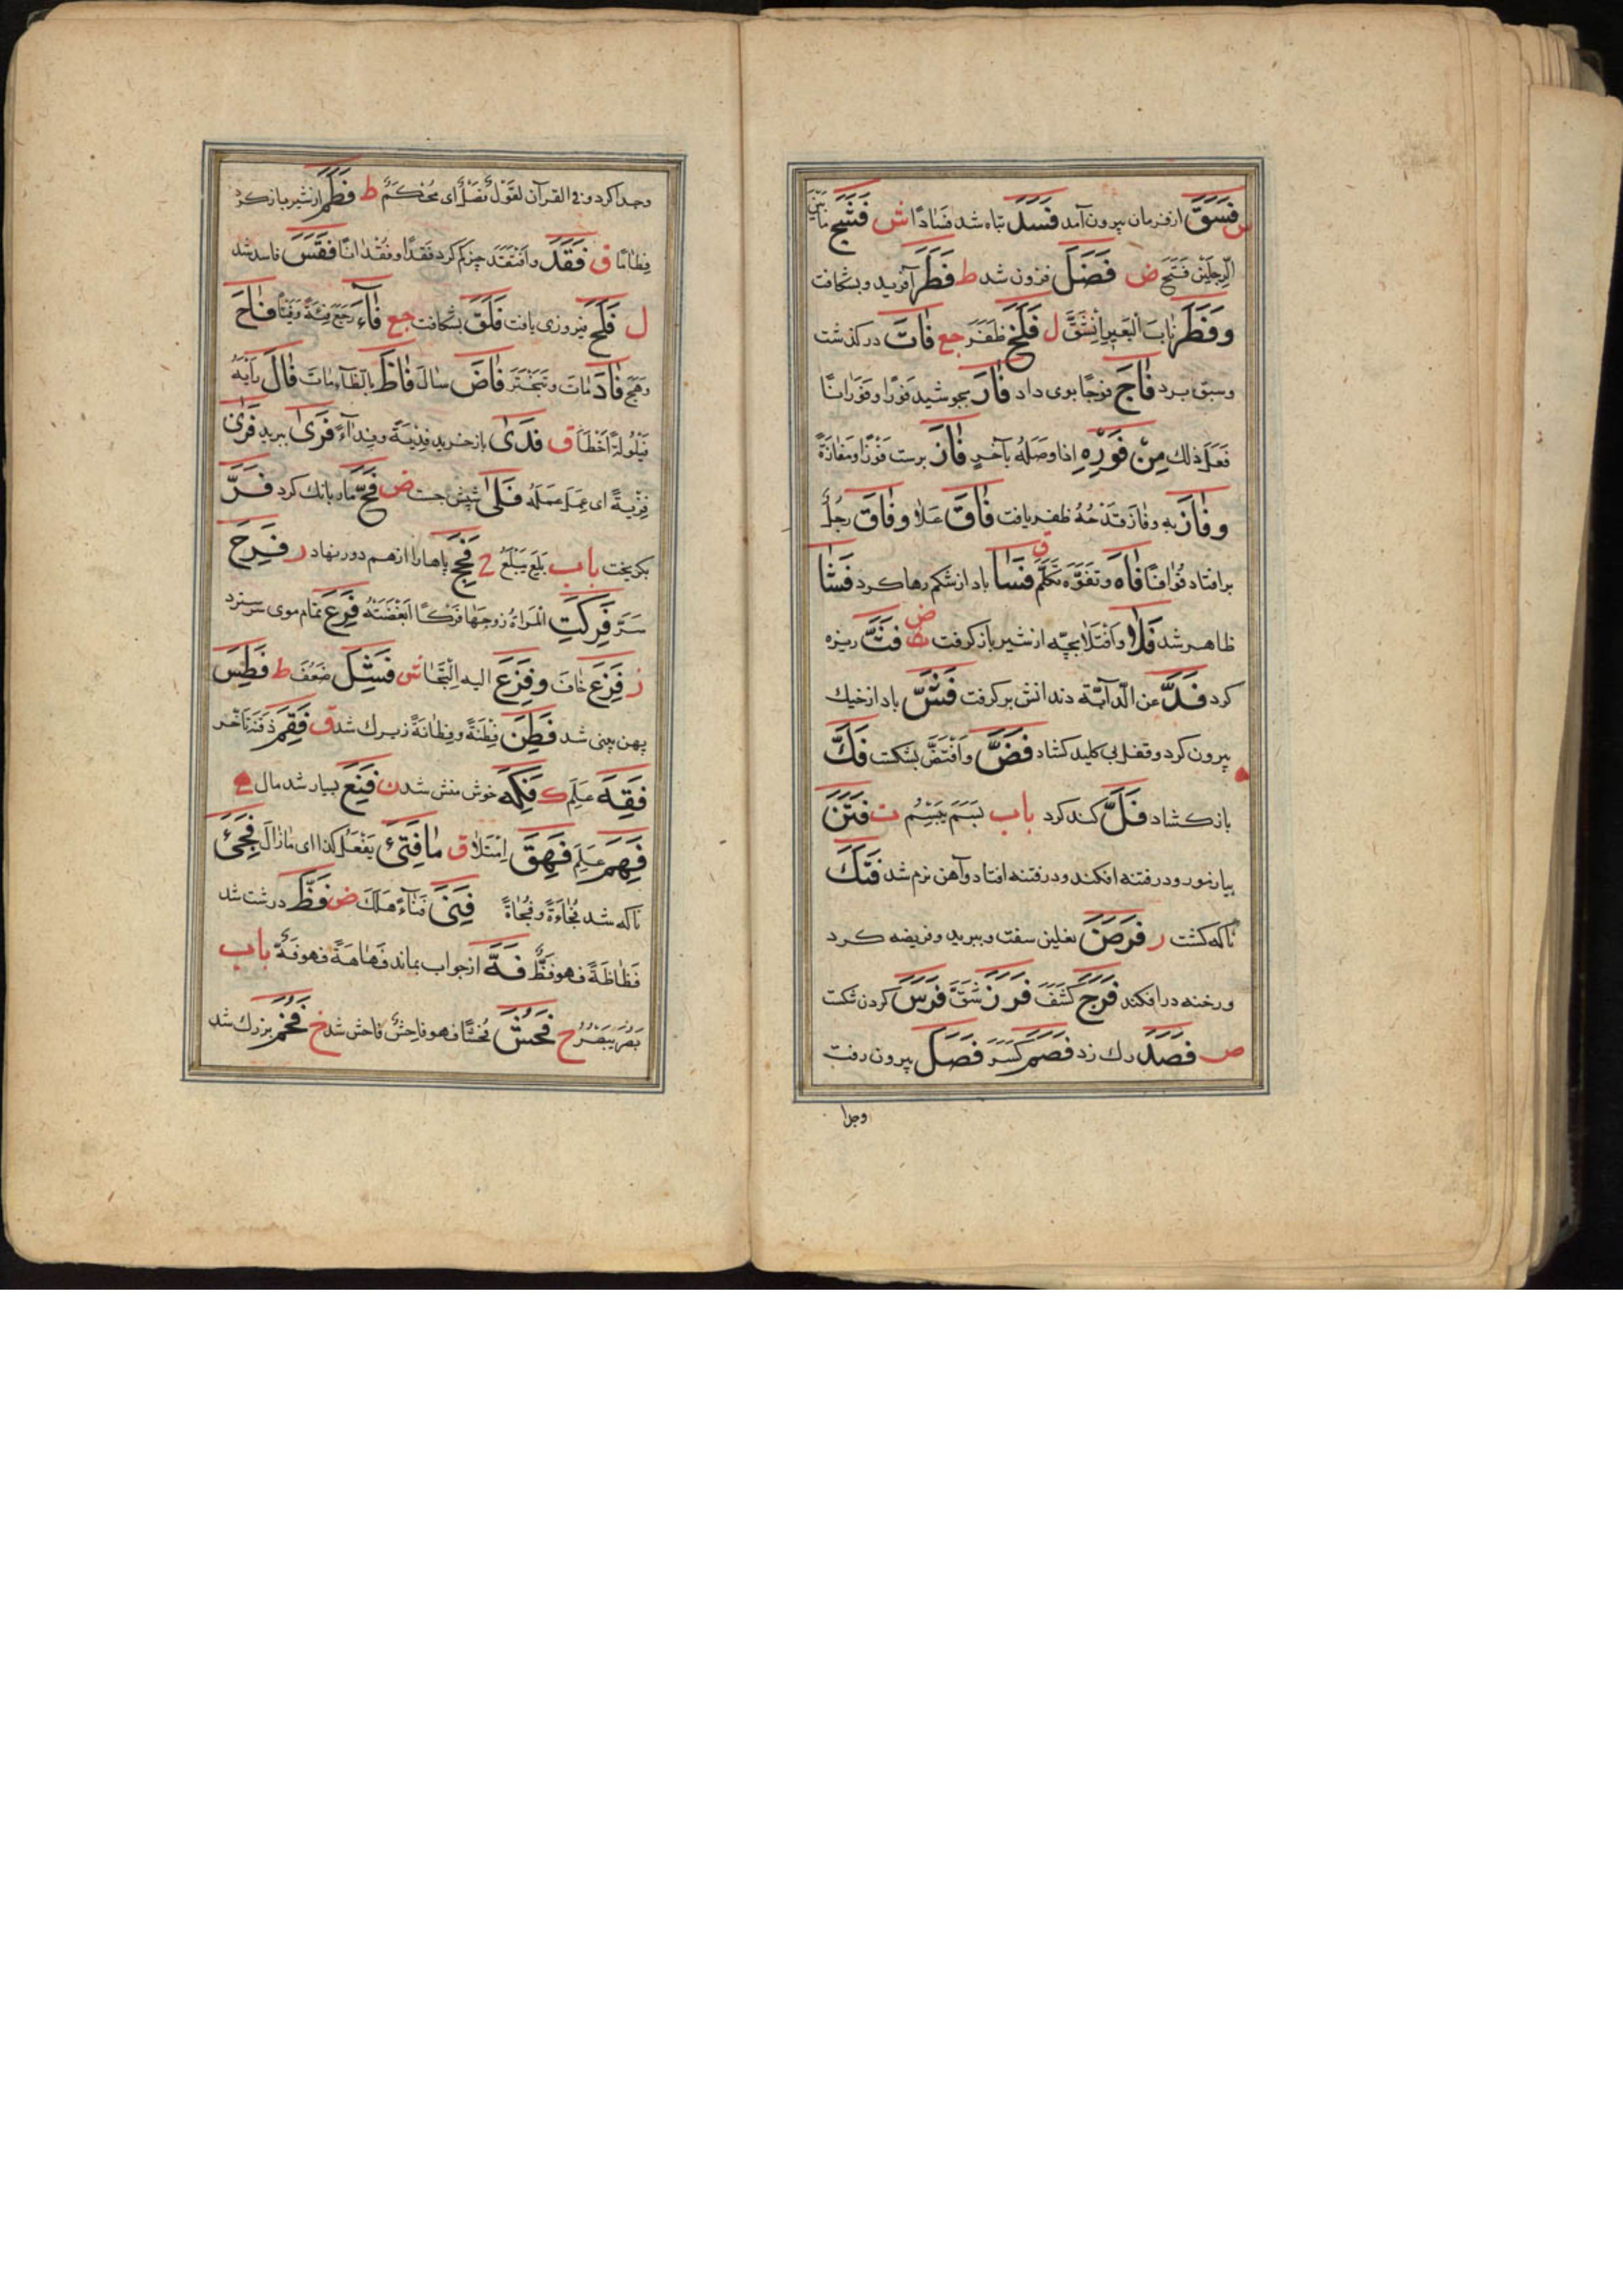 س فَسَقَ از فرمان بیرون آمد فَسَدَ تباه شد فَسَادًا ش فَشَجَ مَا بَيْنَ
الرِّجلَيْنِ فَتَحَ ض فَضَلَ فزون شد ط فَطَرَ آفرید و بشکافت
وفَطَرَ نَابُ الْبَعِيرِ اِنْشَقَّ ل فَلَجَ ظَفَرَ جع فَاتَ درگذشت
وسبق برد فَاجَ فوجًا بوی داد فَارَ بجوشید فَوْرًا و فَوَرَانًا
فَعَلَ ذلك مِنْ فَوْرِهِ اذا وصَلَهُ بآخرٍ فَازَ برست فَوْزًا ومَفَازَةً
وفَازَ به وفاز قَدْحُهُ ظفر یافت فَاقَ عَلَا وفَاقَ رجُلٌ
برافتاد فُوَاقًا فَاهَ وتَفَوَّهَ تَكَلَّمَ فَسَا باد از شکم رها کرد فَشَا
ظاهر شد فَلَا وَافْتَلَا بچه از شیر باز گرفت ض فَتَّ ریزه
کرد فَدَّ عن الدآبّة دندانش برگرفت فَشَّ باد از خیك
بیرون کرد و قفل بی کلید گشاد فَضَّ وَافْتَضَّ بشکست فَكَّ
باز گشاد فَلَّ کند کرد باب بَسَمَ يَبْسِمُ ت فَتَنَ
بیازمود و در فتنه افکند و در فتنه افتاد و آهن نرم شد فَتَكَ
ناگه کشت ر فَرَضَ نعلین سفت و ببرید و فریضه کرد
ورخنه درافکند فَرَجَ كَشَفَ فَرَزَ شَقَّ فَرَسَ گردن شکست
ص فَصَدَ رك زد فَصَمَ كَسَرَ فَصَلَ بیرون رفت
وجدا
وجدا کرد و فی القرآن لقَوْلٌ فَصْلٌ ای مُحْكَمٌ ط فَطَمَ از شیر باز کرد
فِطَامًا ق فَقَدَ وافْتَقَدَ چیز گم کرد فَقْدًا وفُقْدَانًا فَقَسَ فاسد شد
ل فَلَحَ فیروزی یافت فَلَقَ بشکافت جع فَآءَ رَجَعَ فِئَةً وفَيْئًا فَاحَ
فَادَ مَاتَ وتَبَخْتَرَ فَاضَ سال فَاظَ بالظآء مات فَالَ رَأيُهُ
فَيْلُولَةً اَخْطَأَ ق فَدَى باز خرید فِدْيَةً وفِدَآءً فَرَى ببرید فَرَى
فِرْيَةً ای عَمِلَ عَمَلَهُ فَلَى شپش جست ض فَحَّ مار بانك کرد فَرَّ
بگریخت باب بَلَعَ يَبْلَعُ ج فَحِجَ پاها را از هم دور نهاد ر فَرِحَ
سَرَّ فَرِكَتِ المرأةُ زوجَها فَرْكًا ابْغَضَتْهُ فَرِعَ تمام موی سر شد
ز فَزِعَ خَافَ وفَزِعَ الیه اِلْتَجَا ش فَشِلَ ضَعُفَ ط فَطِسَ
پهن بینی شد فَطِنَ فِطْنَةً وفِطَانَةً زیرك شد ق فَقِمَ
فَقِهَ عَلِمَ ك فَكِهَ خوش منش شد ن فَنِعَ بسیار شد مال ه
فَهِمَ عَلِمَ فَهِقَ اِمْتَلَا ق مَا فَتِئَ يَفْعَلُ كذا ای ما زال فَجِئَ
ناگه شد فُجَاءَةً وفُجَاةً فَنِيَ فَنَآءً هَلَكَ ض فَظَّ درشت شد
فَظَاظَةً فهو فَظٌّ فَهَّ از جواب بماند فَهَاهَةً فهو فَهٌّ باب
بَصُرَ يَبْصُرُ ح فَحُشَ فُحْشًا فهو فاحِشٌ فاحش شد خ فَخُمَ بزرك شد